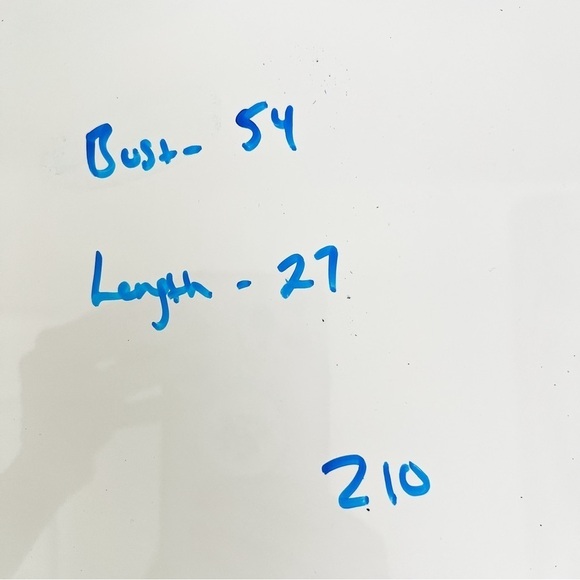 Bust- 54
Length - 27
210